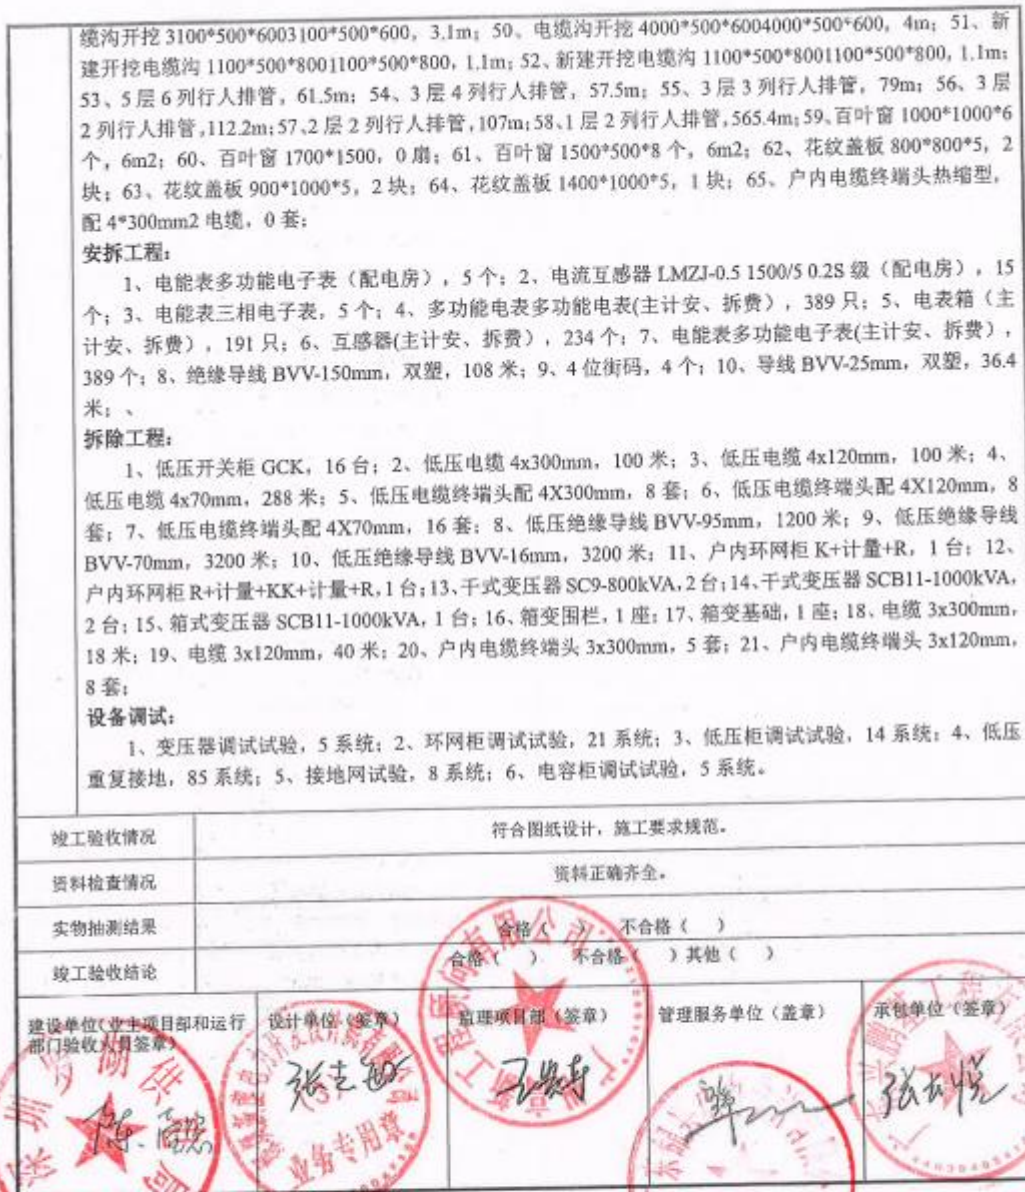 缆沟开挖 3100*500*6003100*500*600，3.1m；50、电缆沟开挖 4000*500*6004000*500*600，4m；51、新
建开挖电缆沟 1100*500*8001100*500*800，1.1m；52、新建开挖电缆沟 1100*500*8001100*500*800，1.1m；
53、5 层 6 列行人排管，61.5m；54、3 层 4 列行人排管，57.5m；55、3 层 3 列行人排管，79m；56、3 层
2 列行人排管，112.2m；57、2 层 2 列行人排管，107m；58、1 层 2 列行人排管，565.4m；59、百叶窗 1000*1000*6
个，6m2；60、百叶窗 1700*1500，0 扇；61、百叶窗 1500*500*8 个，6m2；62、花纹盖板 800*800*5，2
块；63、花纹盖板 900*1000*5，2 块；64、花纹盖板 1400*1000*5，1 块；65、户内电缆终端头热缩型，
配 4*300mm2 电缆，0 套；
安拆工程：
1、电能表多功能电子表（配电房），5 个；2、电流互感器 LMZJ-0.5 1500/5 0.2S 级（配电房），15
个；3、电能表三相电子表，5 个；4、多功能电表多功能电表(主计安、拆费），389 只；5、电表箱（主
计安、拆费），191 只；6、互感器(主计安、拆费），234 个；7、电能表多功能电子表(主计安、拆费），
389 个；8、绝缘导线 BVV-150mm，双塑，108 米；9、4 位街码，4 个；10、导线 BVV-25mm，双塑，36.4
米；、
拆除工程：
1、低压开关柜 GCK，16 台；2、低压电缆 4x300mm，100 米；3、低压电缆 4x120mm，100 米；4、
低压电缆 4x70mm，288 米；5、低压电缆终端头配 4X300mm，8 套；6、低压电缆终端头配 4X120mm，8
套；7、低压电缆终端头配 4X70mm，16 套；8、低压绝缘导线 BVV-95mm，1200 米；9、低压绝缘导线
BVV-70mm，3200 米；10、低压绝缘导线 BVV-16mm，3200 米；11、户内环网柜 K+计量+R，1 台；12、
户内环网柜 R+计量+KK+计量+R，1 台；13、干式变压器 SC9-800kVA，2 台；14、干式变压器 SCB11-1000kVA，
2 台；15、箱式变压器 SCB11-1000kVA，1 台；16、箱变围栏，1 座；17、箱变基础，1 座；18、电缆 3x300mm，
18 米；19、电缆 3x120mm，40 米；20、户内电缆终端头 3x300mm，5 套；21、户内电缆终端头 3x120mm，
8 套；
设备调试：
1、变压器调试试验，5 系统；2、环网柜调试试验，21 系统；3、低压柜调试试验，14 系统；4、低压
重复接地，85 系统；5、接地网试验，8 系统；6、电容柜调试试验，5 系统。
竣工验收情况 符合图纸设计，施工要求规范。
资料检查情况 资料正确齐全。
实物抽测结果 合格（ ） 不合格（ ）
竣工验收结论 合格（ ） 不合格（ ）其他（ ）
建设单位(业主项目部和运行
部门验收人员签章)
设计单位（签章）
监理项目部（签章）
管理服务单位（盖章）
承包单位（签章）
深圳罗湖供
业务专用章
(3)